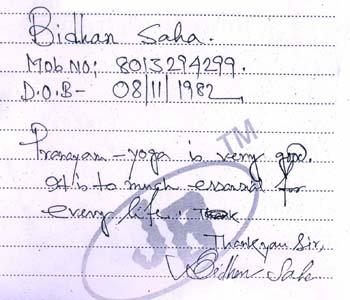 Bidhan Saha.
Mob.NO; 8013294299.
D.O.B- 08/11/1982
TM
Pranayam-yoga is very good.
It is to much essansal for
every life.
JR
Thankyou Sir,
Bidhan Saha